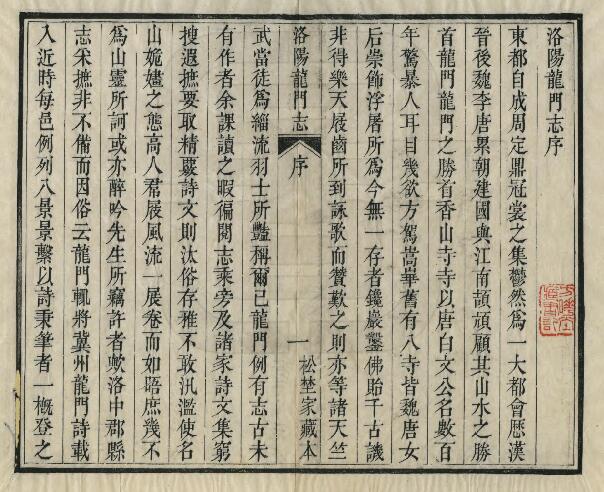 洛陽龍門志序
東都自成周定鼎冠裳之集鬱然爲一大都會歷漢
晉後魏李唐累朝建國與江南頡頏顧其山水之勝
首龍門龍門之勝首香山寺寺以唐白文公名數百
年驚暴人耳目幾欲方駕嵩華舊有八寺皆魏唐女
后崇飾浮屠所爲今無一存者鑱巖鑿佛貽千古譏
非得樂天屐齒所到詠歌而贊歎之則亦等諸天竺
洛陽龍門志 序 一 松埜家藏本
武當徒爲緇流羽士所豔稱爾已龍門例有志古未
有作者余課讀之暇徧閱志乘旁及諸家詩文集窮
搜遐摭要取精覈詩文則汰俗存雅不敢汎濫使名
山姽嫿之態高人君屐風流一展卷而如晤庶幾不
爲山靈所訶或亦醉吟先生所竊許者歟洛中郡縣
志采摭非不備而因俗云龍門輒將冀州龍門詩載
入近時每邑例列八景景繫以詩秉筆者一概登之